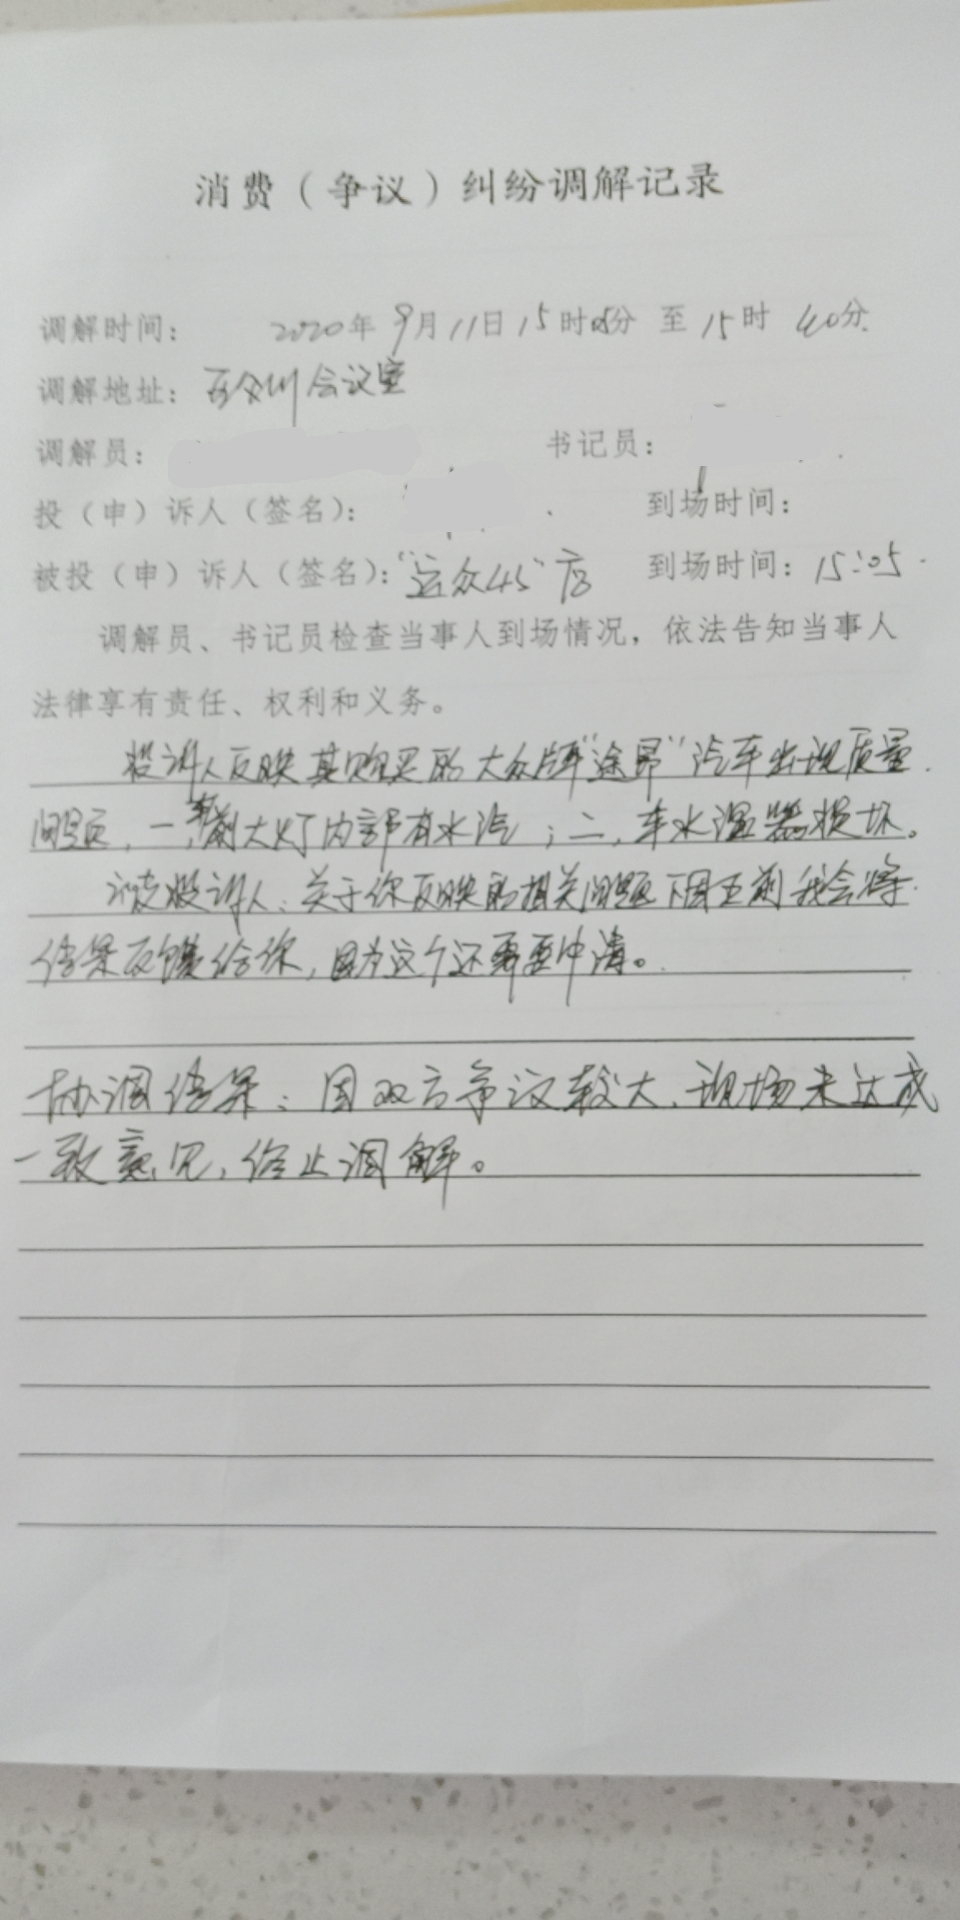 消费（争议）纠纷调解记录
调解时间： 2020年9月11日15时05分 至 15时 40分
调解地址： 会议室
调解员： 书记员：
投（申）诉人（签名）： 到场时间：
被投（申）诉人（签名）：“运众4S”店 到场时间：15:05
调解员、书记员检查当事人到场情况，依法告知当事人
法律享有责任、权利和义务。
投诉人反映其购买的大众牌“途昂”汽车出现质量
问题，一，车前大灯内部有水汽；二，车水温器损坏。
被投诉人：关于你反映的相关问题下周五前我会将
结果反馈给你，因为这个还需要申请。
协调结果：因双方争议较大，现场未达成
一致意见，终止调解。